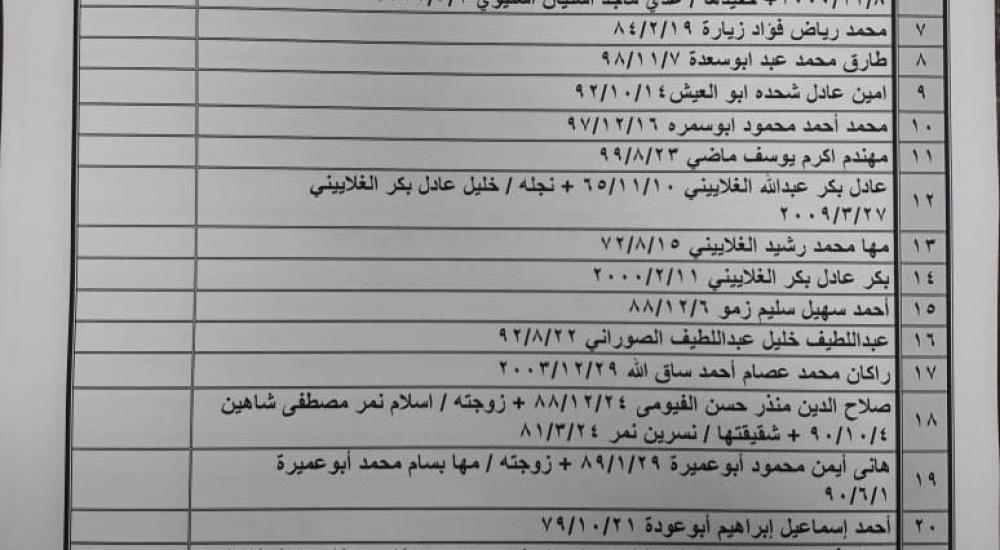 ٧ محمد رياض فؤاد زيارة ٨٤/٢/١٩
٨ طارق محمد عبد ابوسعدة ٩٨/١١/٧
٩ امين عادل شحده ابو العيش٩٢/١٠/١٤
١٠ محمد أحمد محمود ابوسمره ٩٧/١٢/١٦
١١ مهندم اكرم يوسف ماضي ٩٩/٨/٢٣
١٢ عادل بكر عبدالله الغلاييني ٦٥/١١/١٠ + نجله / خليل عادل بكر الغلاييني
٢٠٠٩/٣/٢٧
١٣ مها محمد رشيد الغلاييني ٧٢/٨/١٥
١٤ بكر عادل بكر الغلاييني ٢٠٠٠/٢/١١
١٥ أحمد سهيل سليم زمو ٨٨/١٢/٦
١٦ عبداللطيف خليل عبداللطيف الصوراني ٩٢/٨/٢٢
١٧ راكان محمد عصام أحمد ساق الله ٢٠٠٣/١٢/٢٩
١٨ صلاح الدين منذر حسن الفيومى ٨٨/١٢/٢٤ + زوجته / اسلام نمر مصطفى شاهين
٩٠/١٠/٤ + شقيقتها / نسرين نمر ٨١/٣/٢٤
١٩ هانى أيمن محمود أبوعميرة ٨٩/١/٢٩ + زوجته / مها بسام محمد أبوعميرة
٩٠/٦/١
٢٠ أحمد إسماعيل إبراهيم أبوعودة ٧٩/١٠/٢١